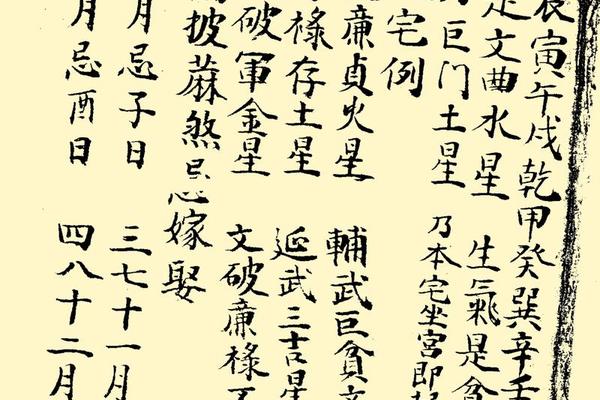 辰寅午戌乾甲癸巽辛壬
是文曲水星 生氣是貪
巨门土星 乃本宅坐宮即
宅例
廉貞火星 輔武巨貪文
禄存土星 延武三吉星
破軍金星 文破廉禄不
披蔴煞忌嫁娶
月忌子日 三七十一月
月忌酉日 四八十二月